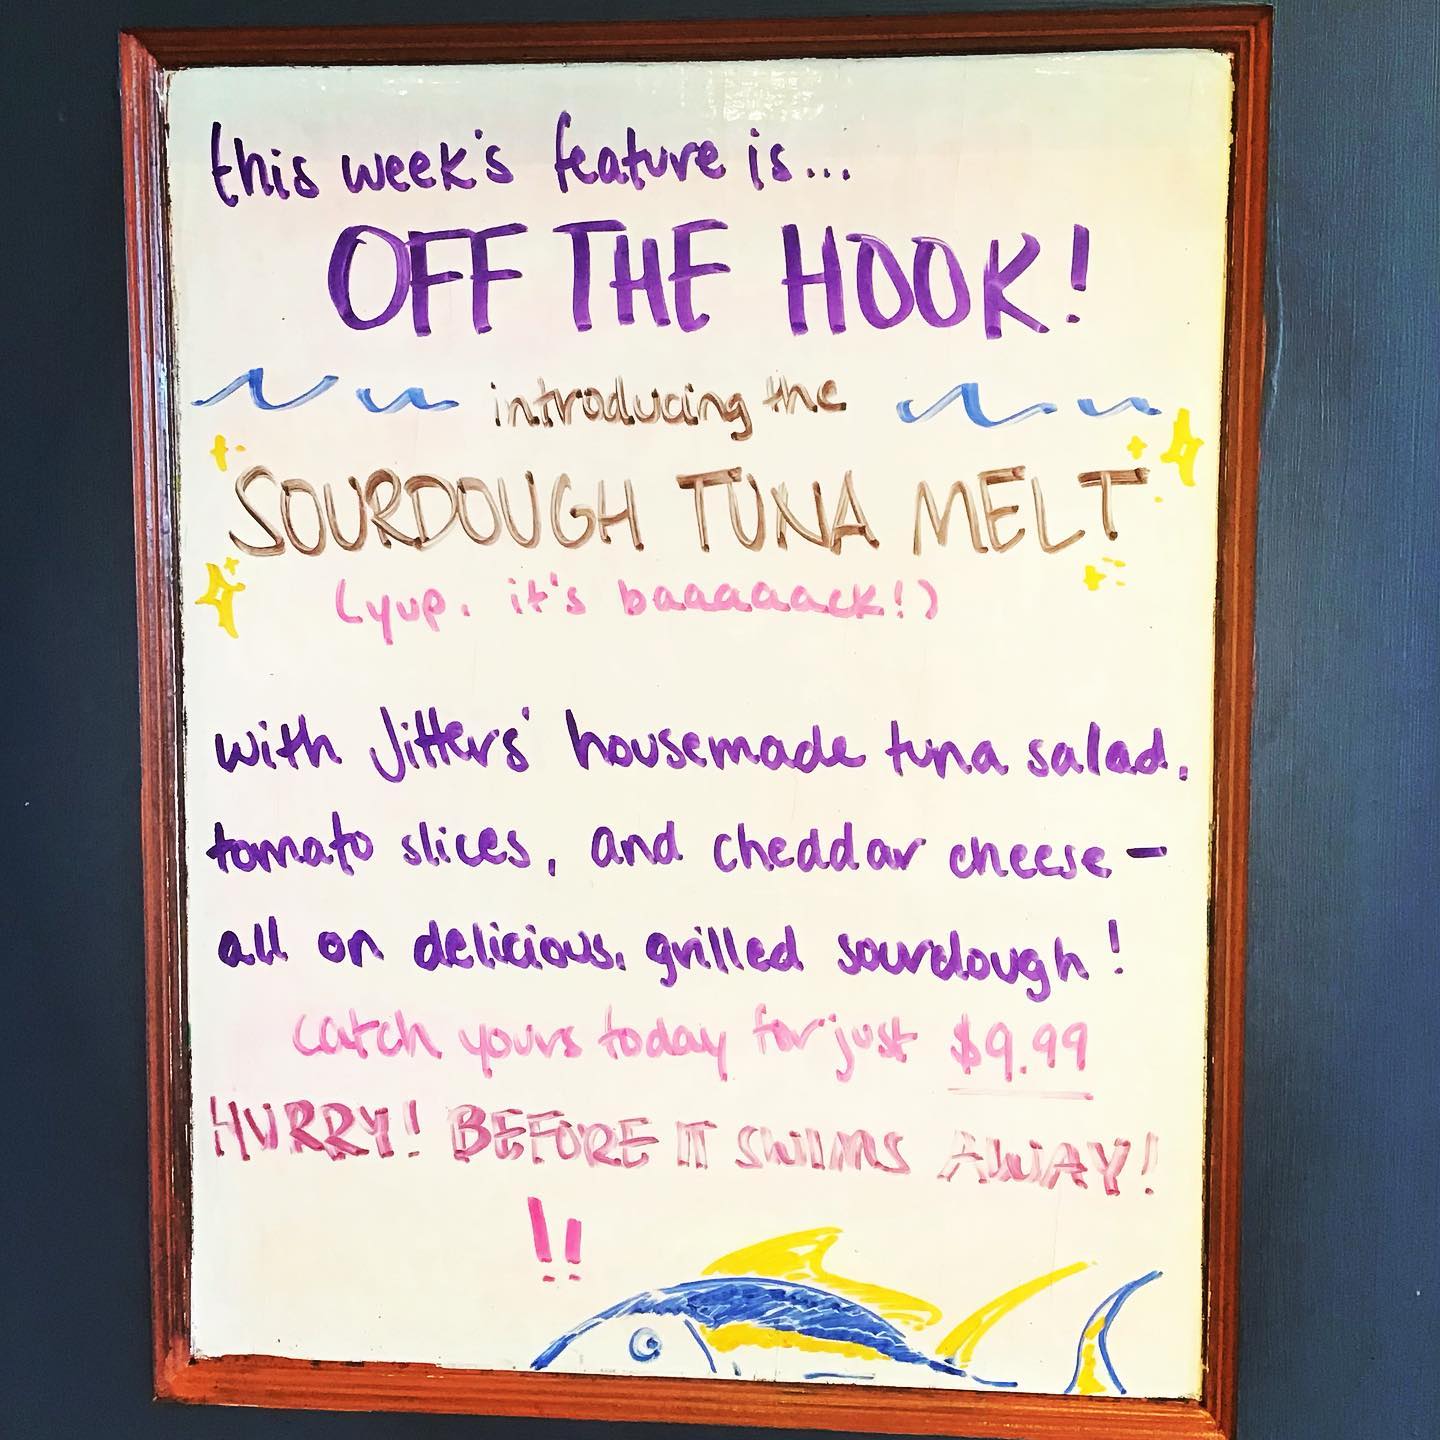 this week's feature is...
OFF THE HOOK!
introducing the
SOURDOUGH TUNA MELT
(yup, it's baaaaaack!)
with Jitters' housemade tuna salad,
tomato slices, and cheddar cheese -
all on delicious, grilled sourdough!
catch yours today for just $9.99
HURRY! BEFORE IT SWIMS AWAY!
!!